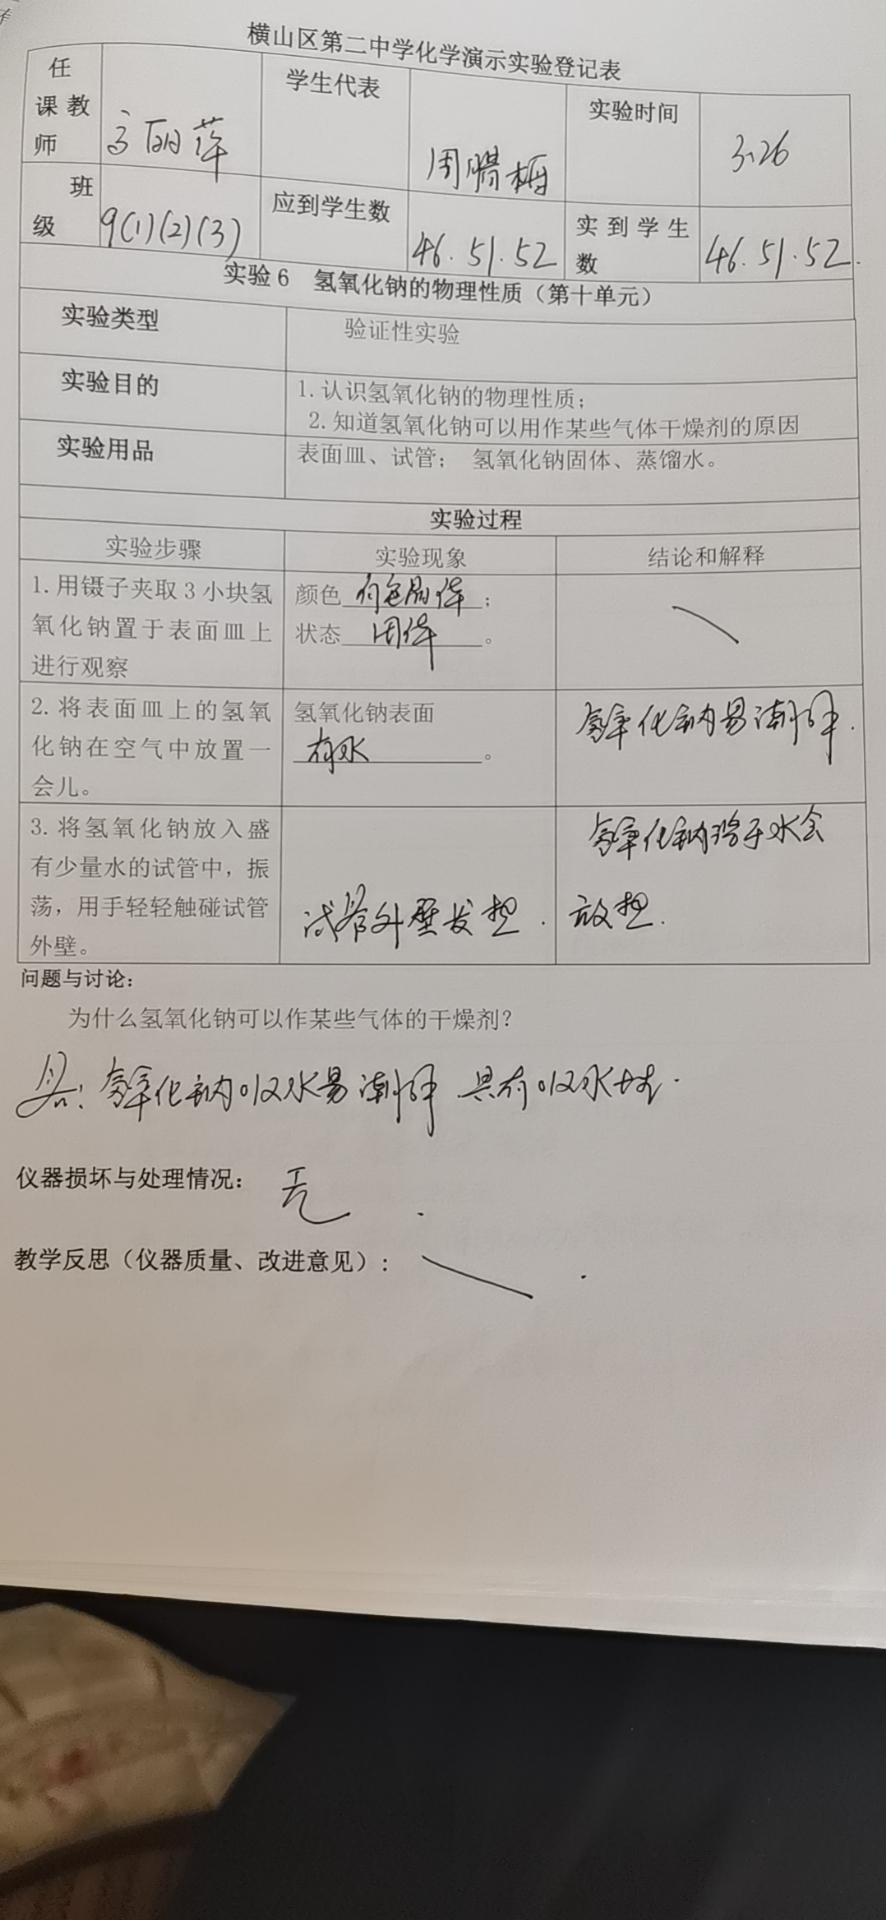 横山区第二中学化学演示实验登记表
任课教师 高丽萍 学生代表 周 实验时间 3.26
班级 9(1)(2)(3) 应到学生数 46.51.52 实到学生数 46.51.52.
实验6 氢氧化钠的物理性质（第十单元）
实验类型 验证性实验
实验目的 1.认识氢氧化钠的物理性质；
2.知道氢氧化钠可以用作某些气体干燥剂的原因
实验用品 表面皿、试管； 氢氧化钠固体、蒸馏水。
实验过程
实验步骤 实验现象 结论和解释
1.用镊子夹取3小块氢
氧化钠置于表面皿上
进行观察
颜色白色固体；
状态 固体 。
2.将表面皿上的氢氧
化钠在空气中放置一
会儿。
氢氧化钠表面
有水 。
氢氧化钠易潮解.
3.将氢氧化钠放入盛
有少量水的试管中，振
荡，用手轻轻触碰试管
外壁。
试管外壁发热.
氢氧化钠溶于水会
放热.
问题与讨论：
为什么氢氧化钠可以作某些气体的干燥剂？
答: 氢氧化钠吸水易潮解 具有吸水性.
仪器损坏与处理情况： 无.
教学反思（仪器质量、改进意见）：